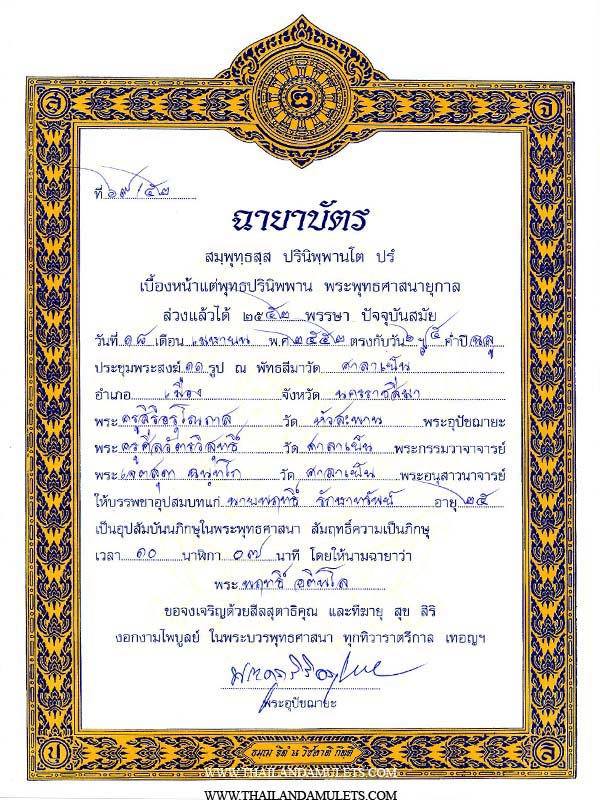 ส
จ
ที่ ๖๙/๕๒
ฉายาบัตร
สมฺพุทฺธสฺส ปรินิพฺพานโต ปรํ
เบื้องหน้าแต่พุทธปรินิพพาน พระพุทธศาสนายุกาล
ล่วงแล้วได้ ๒๕๕๒ พรรษา ปัจจุบันสมัย
วันที่ ๑๘ เดือน เมษายน พ.ศ. ๒๕๕๒ ตรงกับวัน ค่ำปี ฉลู
ประชุมพระสงฆ์ ๑๑ รูป ณ พัทธสีมาวัด ศาลาเย็น
อำเภอ เมือง จังหวัด นครราชสีมา
พระ ครูสิริธรุโณภาส วัด หัวสะพาน พระอุปัชฌายะ
พระ ครูศีลวัตรวิสุทธิ์ วัด ศาลาเย็น พระกรรมวาจาจารย์
พระ วัด ศาลาเย็น พระอนุสาวนาจารย์
ให้บรรพชาอุปสมบทแก่ นายพฤทธิ์ รักษาทรัพย์ อายุ ๒๕
เป็นอุปสัมบันนภิกษุในพระพุทธศาสนา สัมฤทธิ์ความเป็นภิกษุ
เวลา ๑๐ นาฬิกา ๐๗ นาที โดยให้นามฉายาว่า
พระ พฤทธิ์
ขอจงเจริญด้วยสีลสุตาธิคุณ และทีฆายุ สุข สิริ
งอกงามไพบูลย์ ในพระบวรพุทธศาสนา ทุกทิวาราตรีกาล เทอญฯ
พระอุปัชฌายะ
ป
ธมฺเม ฐิตํ น วิชหาติ กิตฺติ
ลิ
WWW.THAILANDAMULETS.COM
WWW.THAILANDAMULETS.COM